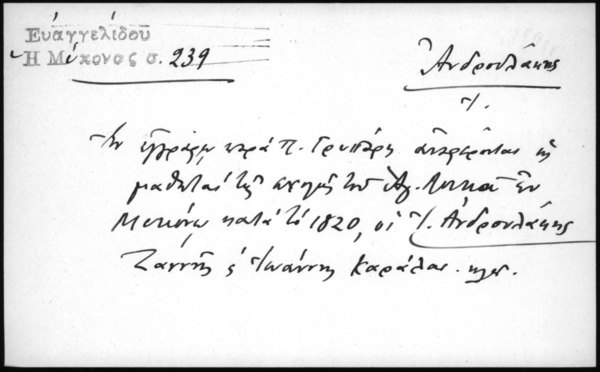 Εὐαγγελίδου
Ἡ Μύκονος σ. 239
Ἀνδρουλάκης
Ἰ.
Ἐν ἐγγράφῳ παρὰ Π. Γρυπάρῃ ἀναφέρονται ὡς
μαθηταὶ τῆς σχολῆς τοῦ Ἁγ. Λουκᾶ ἐν
Μυκόνῳ κατὰ τὸ 1820, οἱ Ἰ. Ἀνδρουλάκης
Ζαννῆς ἢ Ἰωάννης Καράλας κλπ.